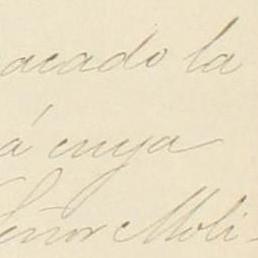 acado la
á cuya
Señor Moli-